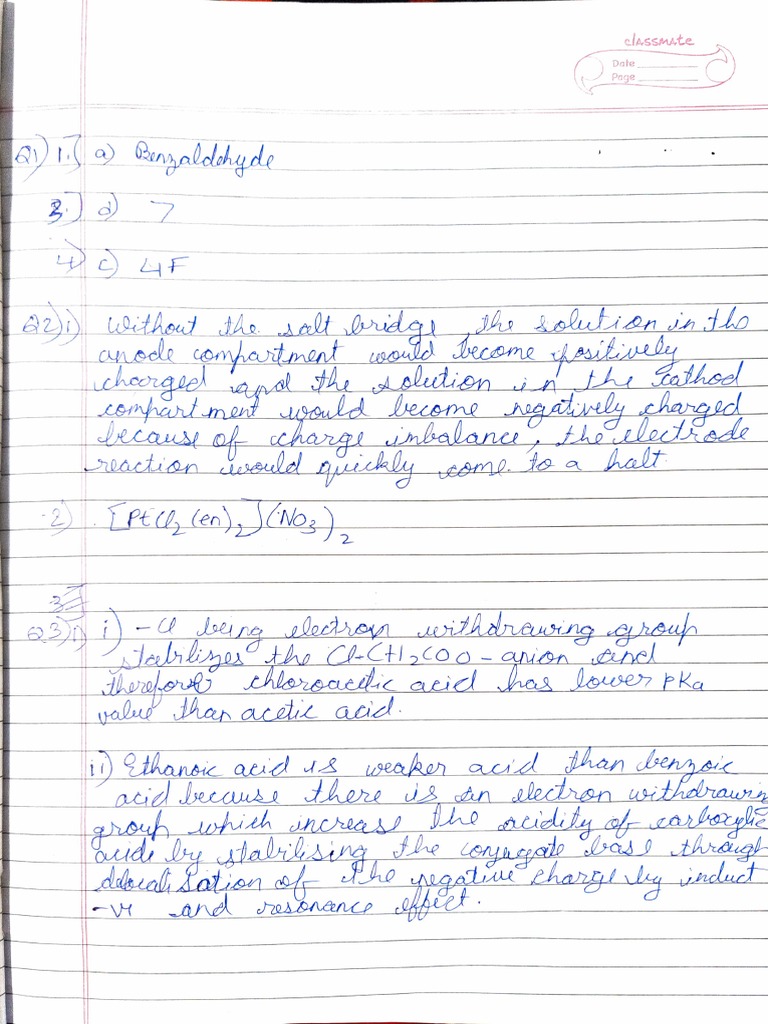 classmate
Date
Page
Q1) 1.) a) Benzaldehyde
3.) d) 7
4) c) 4F
Q2) i) Without the salt bridge, the solution in the
anode compartment would become positively
charged and the solution in the cathod
compartment would become negatively charged
because of charge imbalance, the electrode
reaction would quickly come to a halt.
2) . [PtCl2(en)2](NO3)2
Q3) i) i) -Cl being electron withdrawing group
stabilizes the Cl-CH2COO- anion and
therefore chloroacetic acid has lower pKa
value than acetic acid.
ii) Ethanoic acid is weaker acid than benzoic
acid because there is an electron withdrawing
group which increase the acidity of carboxylic
acids by stabilising the conjugate base through
delocalisation of the negative charge by induct
-ve and resonance effect.